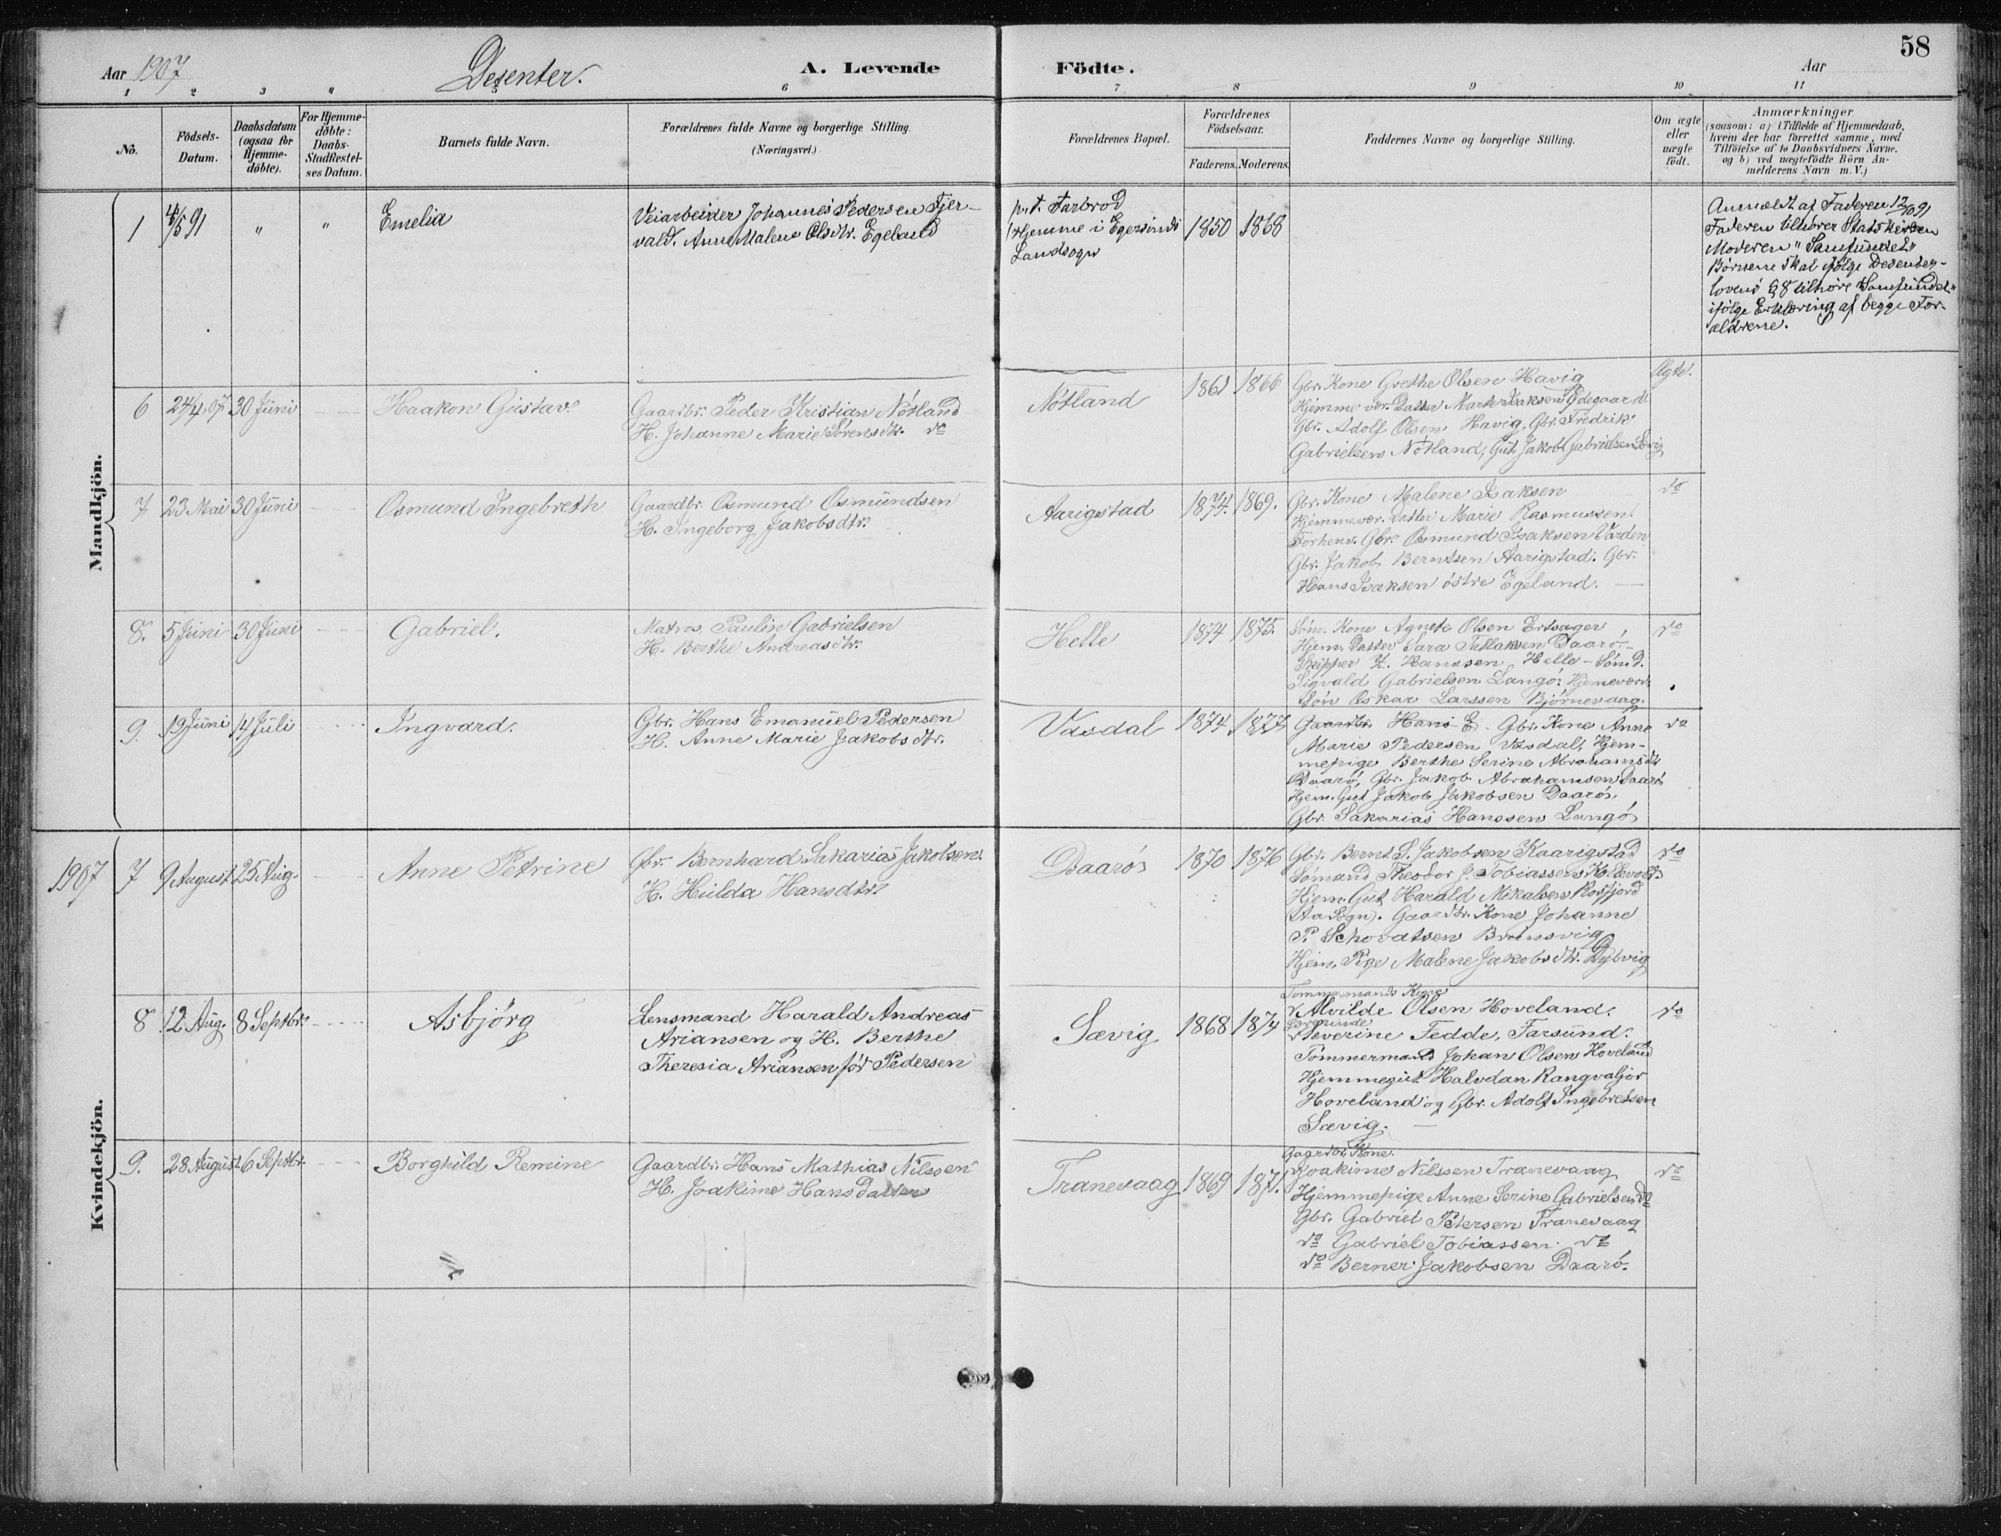 58
Aar 1907
Desenter.
A. Levende Födte.
Aar
1 2 3 " 6 7 8 9 10 11
No.
Födsels-
Datum.
Daabsdatum
(ogsaa for
Hjemme-
döbte).
For Hjemme-
döbte:
Daabs-
Stadfæstel-
ses Datum.
Barnets fulde Navn.
Forældrenes fulde Navne og borgerlige Stilling.
(Næringsvei.)
Forældrenes Bopæl.
Forældrenes
Födselsaar.
Faderens. Moderens.
Faddernes Navne og borgerlige Stilling.
Om ægte
eller
uægte
födt.
Anmærkninger
(saasom: a) i Tilfælde af Hjemmedaab,
hvem der har forrettet samme, med
Tilföielse af to Daabsvidners Navne.
og b) ved uægtefödte Börn An-
melderens Navn m. V.)
Mandkjön.
1 4/5 91 " " Emelia
Veiarbeider Johannes Pedersen Tjer-
vald. Anne Malene Olsdtr. Egeland
p.t. Farbrod
(Hjemme i Egersunds
Landsogn
1850 1868
Anmeldt af Faderen 12/10 91
Faderen tilhører Statskirken
Moderen "Samfundet"
Børnene skal ifølge Desenter-
lovens § 8 tilhøre "Samfundet"
ifølge Erklæring af begge For-
ældrene.
6 24/4 07 30 Juni Haakon Gustav.
Gaardbr. Peder Kristian Nøtland
H. Johanne Marie Sørensdtr. do
Nøtland 1861 1866
Gbr. Kone Grethe Olsen Havig
Hjemme vær. Datter Marte Isaksen Ødegaard
Gbr. Adolf Olsen Havig, Gbr. Fredrik
Gabrielsen Nøtland, Gut Jakob Gabrielsen Sævig
Ægte.
7 23 Mai 30 Juni Osmund Ingebreth
Gaardbr. Osmund Osmundsen
H. Ingeborg Jakobsdtr.
Aarigstad 1874. 1869.
Gbr. Kone Malene Isaksen
Hjemmevær. Datter Marie Rasmussen
Forhenv. Gbr. Osmund Isaksen Vården
Gbr. Jakob Berntsen Aarigstad. Gbr.
Hans Isaksen østre Egeland.
do
8. 5 Juni 30 Juni Gabriel.
Matros Paulin Gabrielsen
H. Berthe Andreasdtr.
Helle 1874 1875.
Søm. Kone Agnete Olsen Ertsager,
Hjem. Datter Sara Tallaksen Daarø.
Skipper Z. Hanssen Helle - Sømd.
Sigvald Gabrielsen Langø. Hjemevær.
Søn Oskar Larssen Bjørnevaag.
do
9. 19 Juni 14 Juli Ingvard.
Gbr. Hans Emanuel Pedersen
H. Anne Marie Jakobsdtr.
Vasdal 1874 1877
Gaardbr. Hans E. Gbr. Kone Anne
Marie Pedersen Vasdal, Hjem-
mepige Berthe Serine Abrahamsdtr
Daarø, Gbr. Jakob Abrahamsen Daarø
Hjem. Gut Jakob Jakobsen Daarø.
Gbr. Sakarias Hanssen Langø
do
Kvindekjön.
1907 7 9 August 25 Aug. Anne Petrine
Gbr. Bernhard Sakarias Jakobsen.
H. Hulda Hansdtr.
Daarø 1870 1876
Gbr. Bernt S. Jakobsen Kaarigstad
Sømand Theodor J. Tobiassen Kollevold
Hjem. Gut Harald Mikalsen Rosfjord
Aa Sogn. Gaardbr. Kone Johanne
P. Sehovdtsen Brunsvig
Hjem. Pige Malene Jakobsdtr. Dybvig
do
8 12 Aug. 8 Septbr. Asbjörg
Lensmand Harald Andreas
Ariansen og H. Berthe
Theresia Ariansen før Pedersen
Sævig 1868 1874
Tømmermands Kone
Alvilde Olsen Hoveland.
Severine Tedde, Farsund.
Tømmermand Johan Olsen Hoveland
Hjemmegut Halvdan Rangvaldjor
Hoveland og Gbr. Adolf Ingebretsen
Sævig.
do
9. 28 August 6 Septbr. Borghild Remine
Gaardbr. Hans Mathias Nilssen
H. Joakime Hansdatter
Tranevaag 1869 1871.
Gaardbr. Kone
Joakime Nilssen Tranevaag
Hjemmepige Anne Serine Gabrielsen do
Gbr. Gabriel Petersen Tranevaag
do Gabriel Tobiassen. do
do Berner Jakobsen Daarø.
do